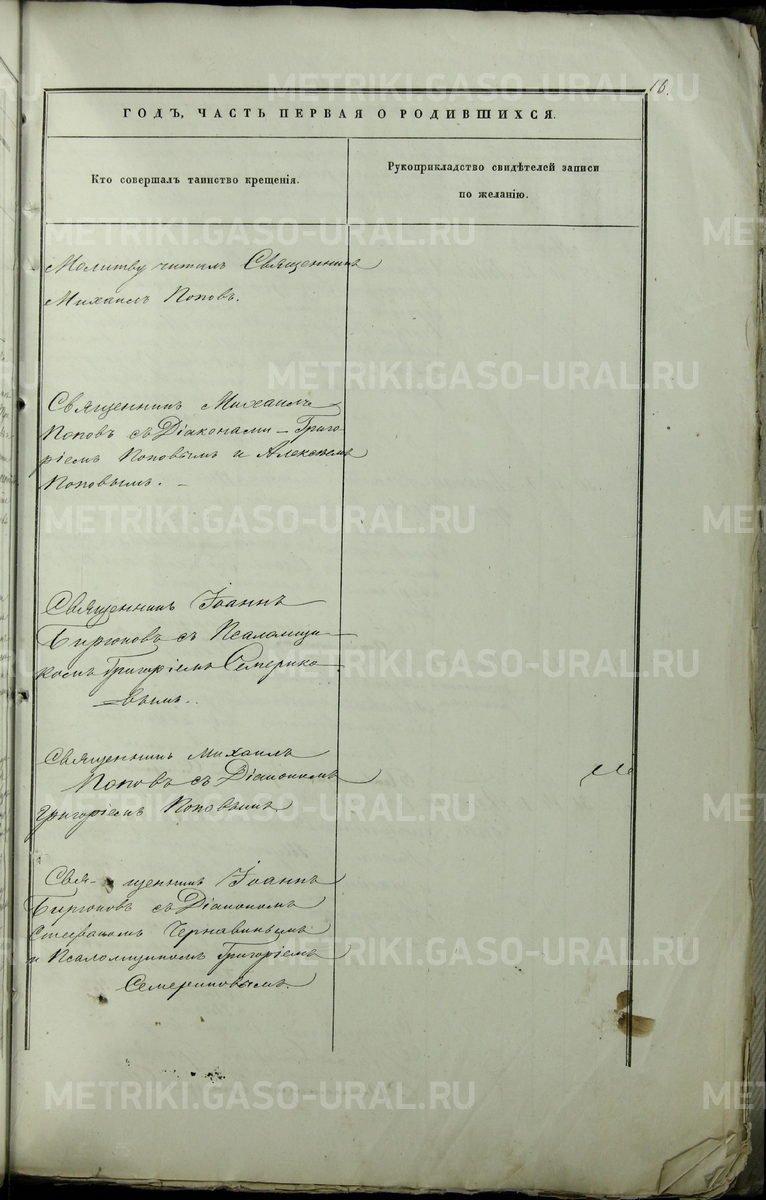 18.
ГОДЪ, ЧАСТЬ ПЕРВАЯ О РОДИВШИХСЯ.
Кто совершалъ таинство крещенія.
Рукоприкладство свидѣтелей записи
по желанію.
Молитву читалъ Священникъ
Михаилъ Поповъ.
Священникъ Михаилъ
Поповъ съ Діаконами – Григо-
ріемъ Поповымъ и Алексѣемъ
Поповымъ. –
Священникъ Іоаннъ
Бирюковъ съ Псаломщи-
комъ Григоріемъ Семерико-
вымъ.
Священникъ Михаилъ
Поповъ съ Діакономъ
Григоріемъ Поповымъ
Свя- щенникъ Іоаннъ
Бирюковъ съ Діакономъ
Стефаномъ Чернавинымъ
и Псаломщикомъ Григоріемъ
Семериковымъ.
METRIKI.GASO-URAL.RU